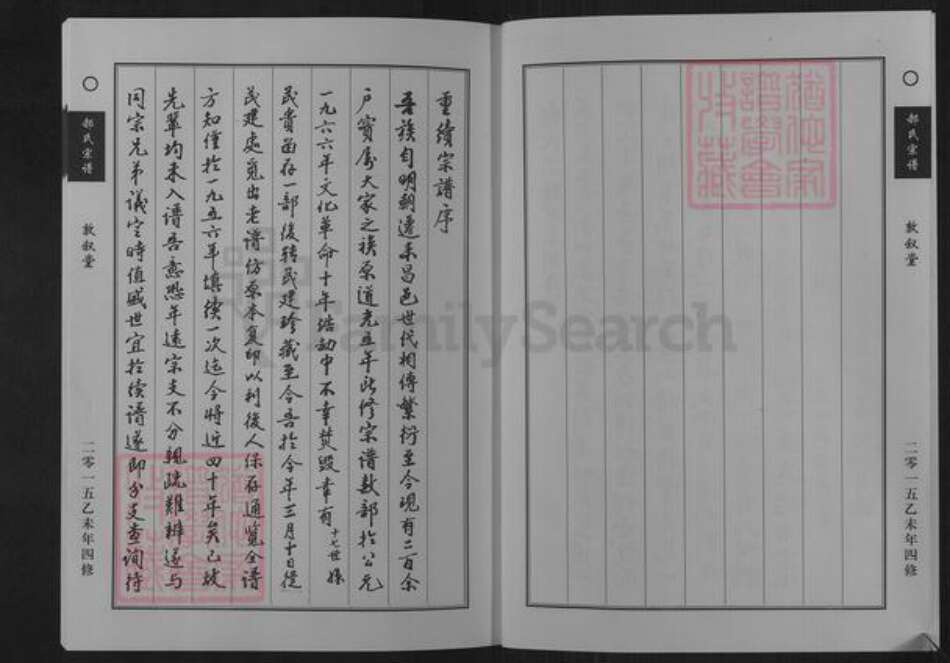 重續宗譜序
吾族自明朝遷來昌邑世代相傳繁衍至今現有二百余
户實屬大家之族原道光五年此修宗譜數部於公元
一九六六年文化革命十年浩劫中不幸焚毀幸有十七世孫
茂貴函存一部後轉茂建珍藏至今吾於今年三月十日從
茂建處覓出老譜仿原本复印以利後人保存通覽全譜
方知僅於一九五六年填續一次迄今將近四十年矣已故
先輩均未入譜吾意恐年遠宗支不分親疏難辨遂与
同宗兄弟議定時值盛世宜於續譜遂即分支查詢待
郝氏宗譜
敦叙堂
二零一五乙未年四修
郝氏宗譜
敦叙堂
二零一五乙未年四修
猶他家
譜學會
收藏
FamilySearch